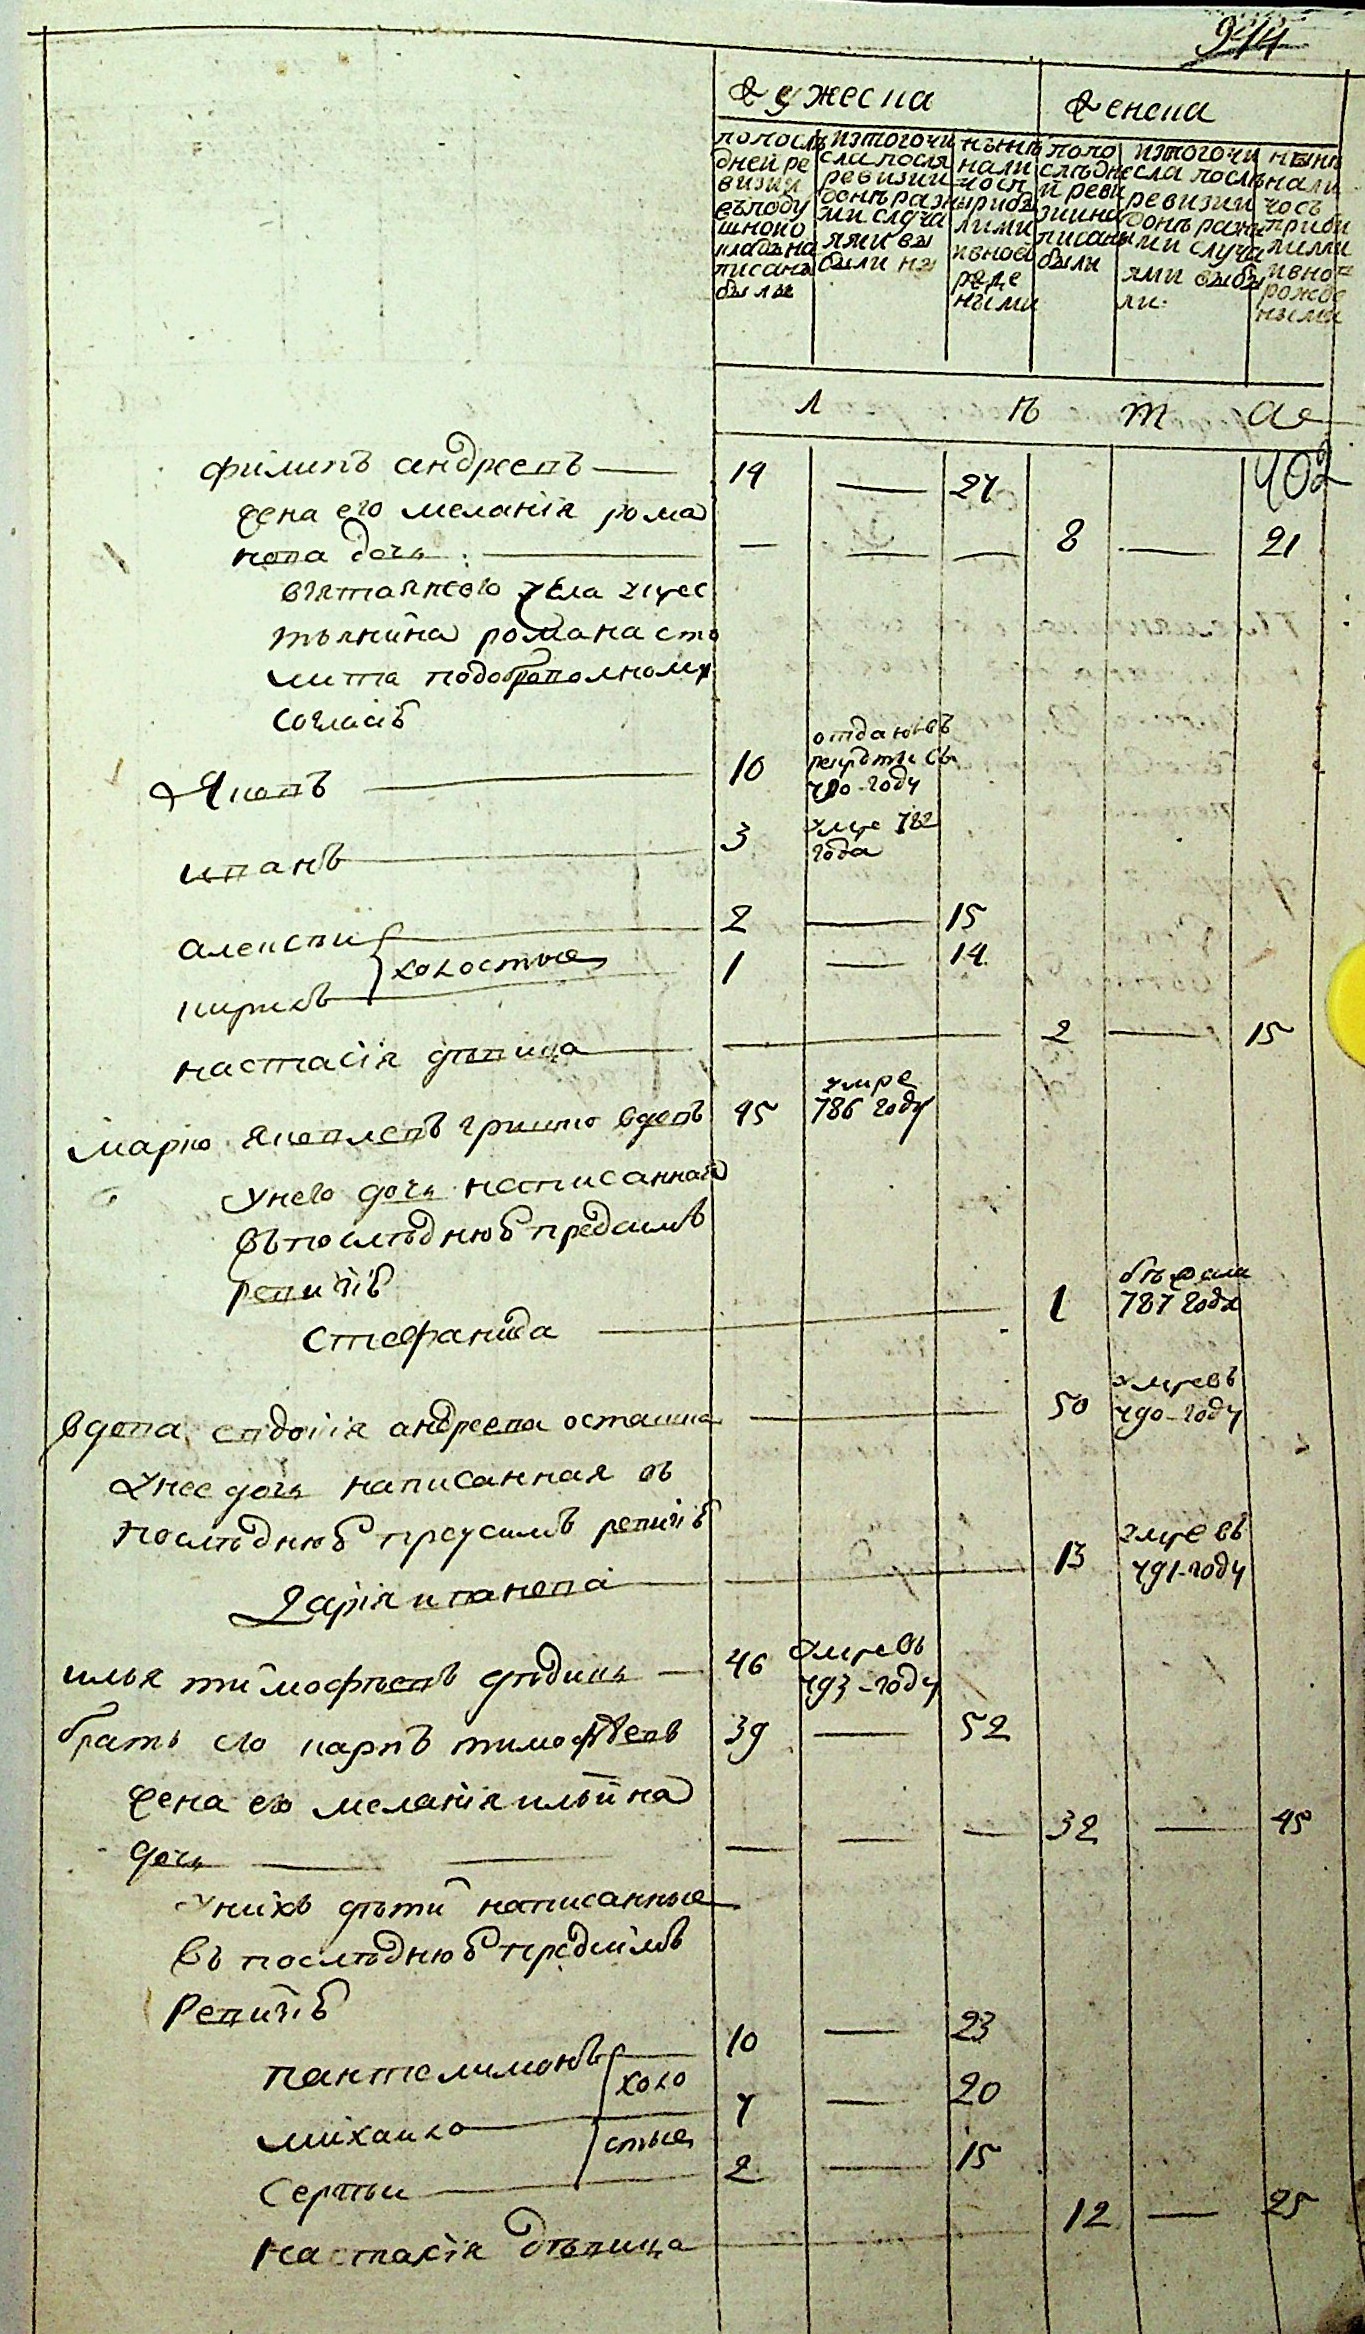 944
Мужеска
Женска
попослѣ
дней ре
визии
въподу
шномо
кладѣна
писаны
были
изтогочи
сла после
ревизии
донѣразны
ми случа
ями вы
были
нынѣ
нали
чосъ
сприбы
лими
ивновъ
рожде
ными
попо
слѣдне
й реви
зиина
писаны
были
изтогочи
сла послѣ
ревизии
донѣ разны
ми случа
ями выбы
ли:
нынѣ
нали
чосъ
сприбы
лыми
ивно=
рожде
ными
л ѣ т а
402
филипъ андреевъ 14 — 27
жена его меланiя рома
нова дочь: — — — 8 — 21
взятая
тьянина романа
по добровольному
согласiю
Яковъ 10 отданъ въ
рекруты въ
790-году
иванъ 3 умре 782
года
алексѣи 2 — 15
холостые
кирилъ 1 — 14
настасiя дѣвица 2 — 15
марко яковлевъ гришко вдовъ 45 умре
786 году
унего дочь неписанная
въпослѣднюю предсимъ
ревизiю
Стефанида 1 бѣжала
787 года
вдова евдокiя андреева осташка 50 умре въ
790-году
унее дочь написанная въ
послѣднюю предсимъ ревизiю
Дарiя иванова 13 умре въ
791-году
илья тимофѣевъ дѣдинъ — 46 умре въ
793-году
братъ его карпъ тимофѣевъ 39 — 52
жена ево меланiя ильина
дочь — — — 32 — 45
унихъ дѣти написанные
въ послѣднюю предсимъ
Ревизiю
пантелимонъ 10 — 23
холо
михаило 7 — 20
стые
Сергѣи 2 — 15
настасiя дѣвица 12 — 25